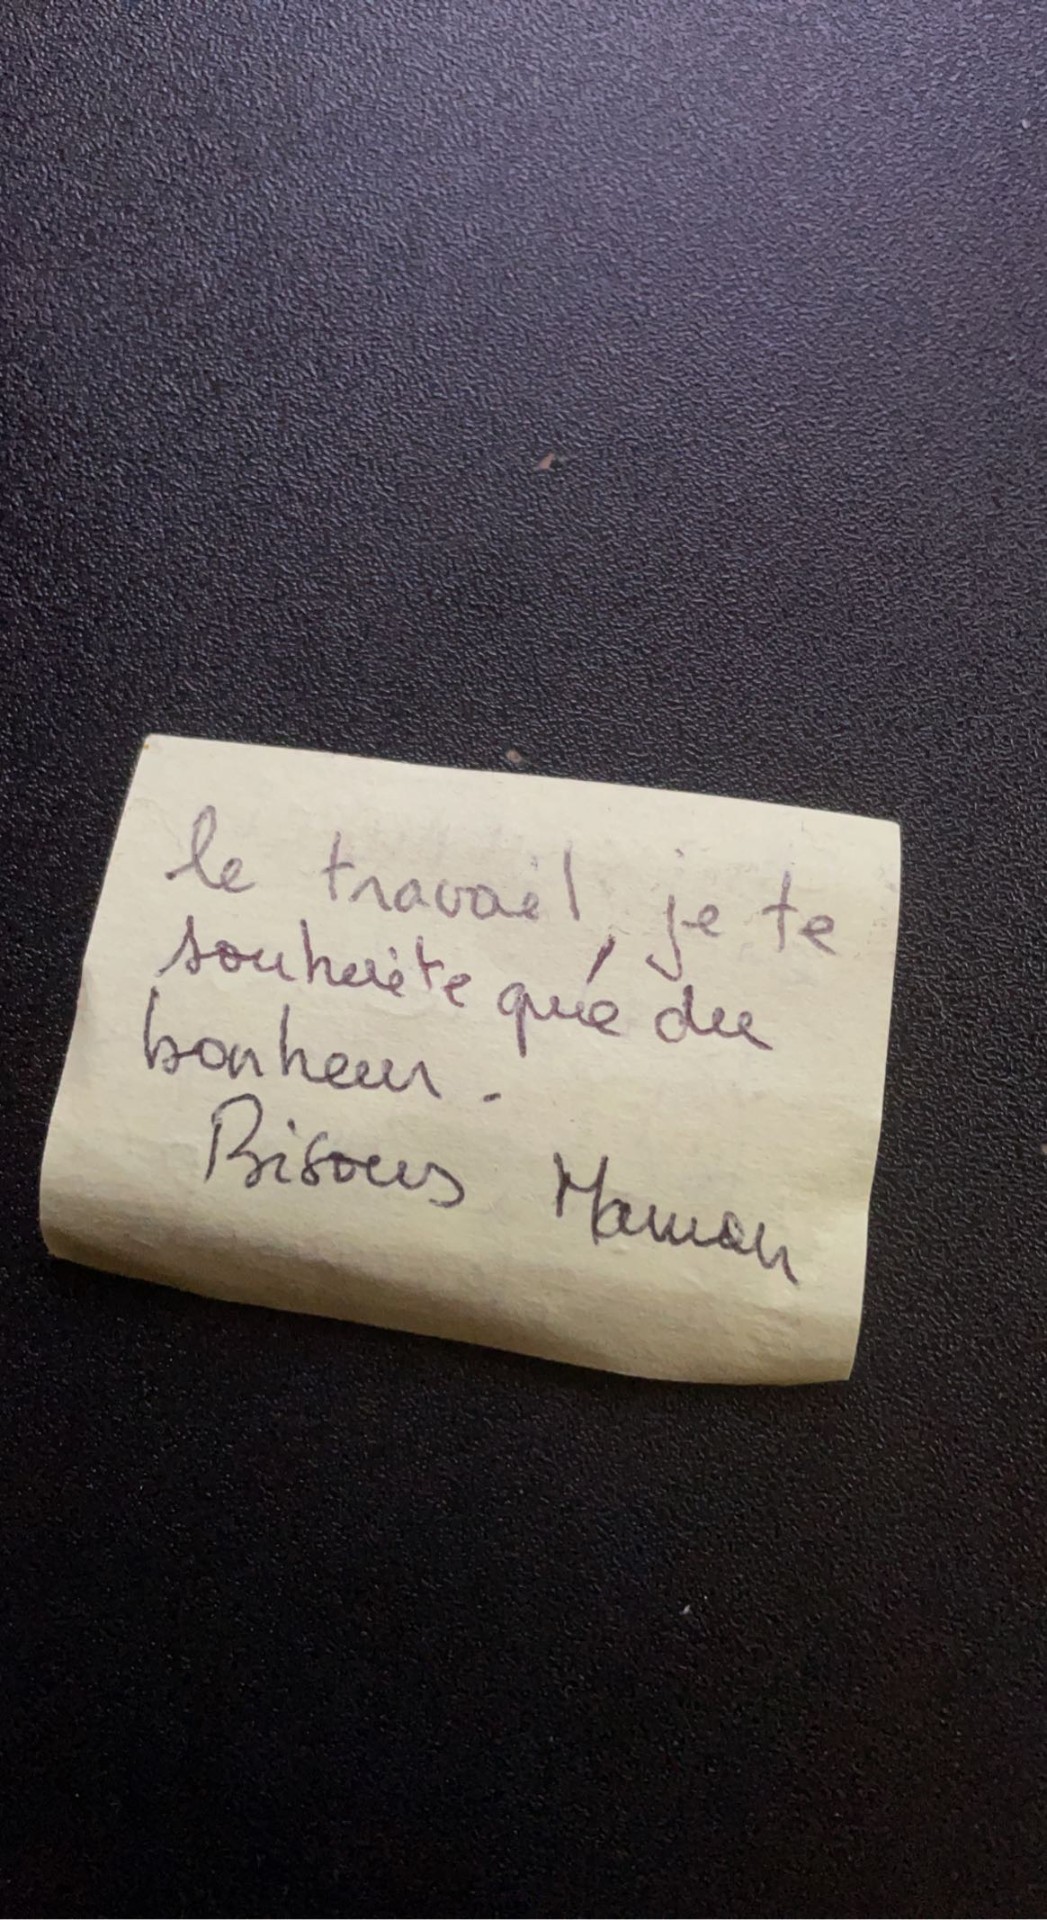 le travail, je te
souhaite que du
bonheur.
Bisous Maman